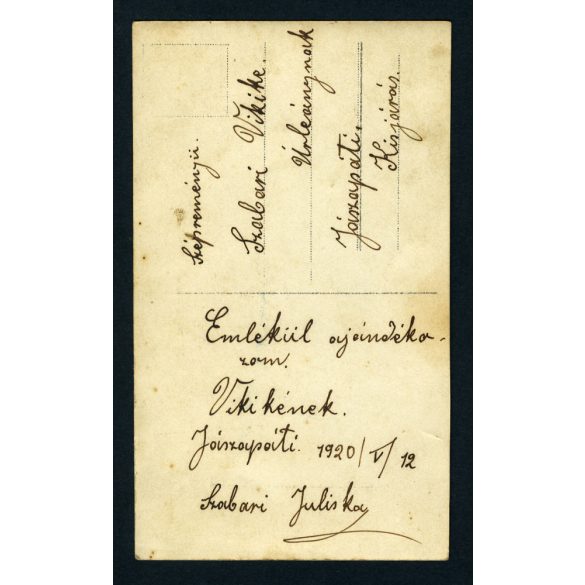 Szépreményü.
Szabari Vikike.
Úrleánynak
Jászapáti.
Kisjárás.
Emlékül ajándéko-
zom.
Vikikének.
Jászapáti. 1920/V/12
Szabari Juliska